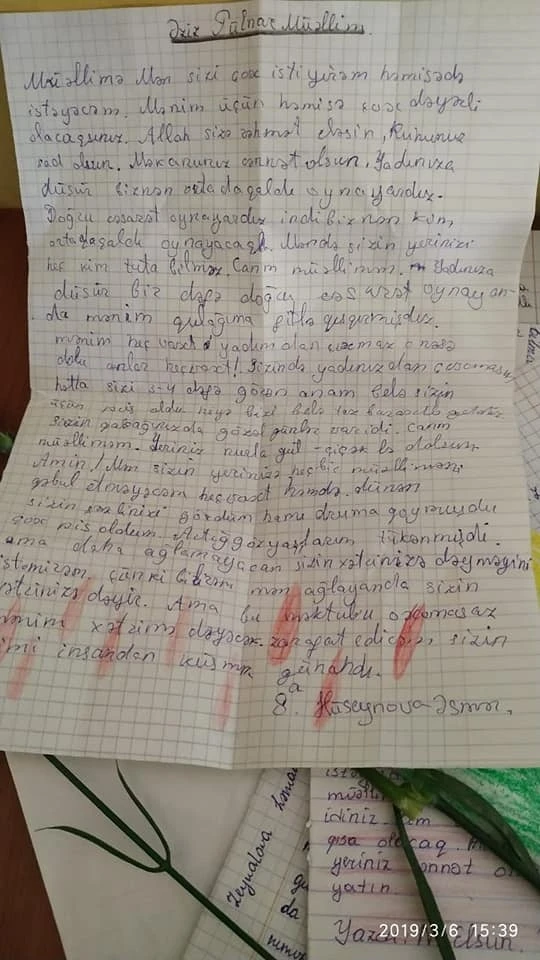 Əziz Gülnar Müəllim.
Müəllimə Mən sizi çox istiyirəm həmişədə
istəyəcəm. Mənim üçün həmişə çox dəyərli
olacaqsınız. Allah sizə rəhmət eləsin, Ruhunuz
şad olsun. Məkanınız cənnət olsun, Yadınıza
düşür biznən ortadaqaldı oynayardız.
Doğru cəsarət oynayardız indi biznən kim,
ortadaqaldı oynayacaq. Məndə sizin yerinizi
heç kim tuta bilməz. Canım müəlliməm. Yadınıza
düşür bir dəfə doğru cəsarət oynayan-
da mənim qulağıma
mənim heç vaxt yadımdan çıxmaz
dolu anlar heçvaxt! Sizində yadınızdan çıxmasın,
hətta sizi 3-4 dəfə görən anam belə sizin
üçün pis oldu niyə bizi belə tez
sizin qabağınızda gözəl günlər varidi. Canım
müəlliməm. Yeriniz nurla gül-çiçək lə dolsun.
Amin! Mən sizin yerinizə heçbir müəlliməni
qəbul etməyəcəm heçvaxt həmdə. dünən
sizin şəklinizi gördüm
çox pis oldum. Artıq gözyaşlarım tükənmişdi.
ama daha ağlamayacam sizin xətrinizə dəyməyini
istəmirəm, çünki bilirəm mən ağlayanda sizin
xətrinizə dəyir. Ama bu məktubu oxumasaz
mənim xətrimə dəyəcək. zarafat edirəm, sizin
kimi insandan küsmək günahdı.
8ᵃ. Hüseynova Əsmər.
Zeynalova
da
müəllim
idiniz.
qısa olacaq.
yeriniz cənnət
yatın.
2019/3/6 15:39